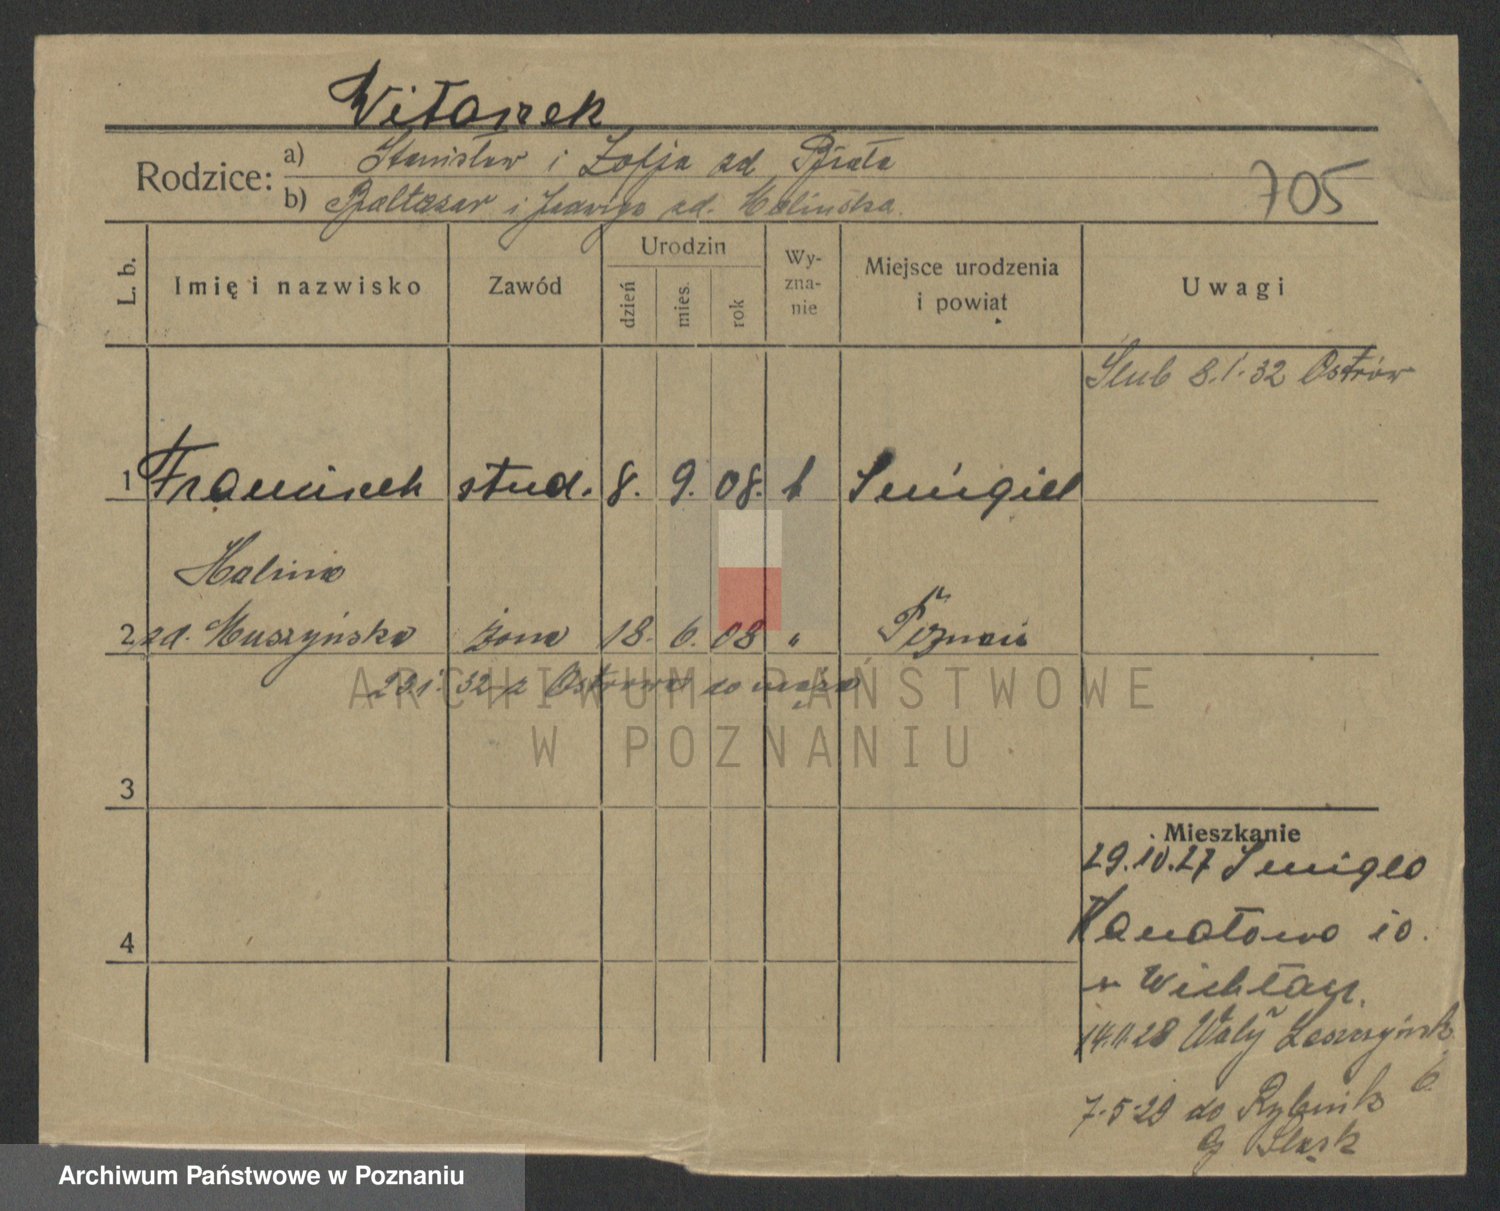 Witanek
Rodzice: a) Stanisław i Zofja zd
b) Baltazar i Jadwiga zd. Molińska.
705
L. b.
Imię i nazwisko
Zawód
Urodzin
dzień
mies.
rok
Wy-
zna-
nie
Miejsce urodzenia
i powiat
Uwagi
Ślub 8.1.32 Ostrów
1 Franciszek stud. 8. 9. 08. k Śmigiel
Halina
2 zd. Muszyńska żona 18. 6. 08 " Poznań
23.1.32 z Ostrowa do męża
3
4
Mieszkanie
29.10.27 Śmigla
10.
u
14.11.28 Wały Leszczyńsk
6
7.5.29 do Rybnik
G Śląsk
ARCHIWUM PAŃSTWOWE
W POZNANIU
Archiwum Państwowe w Poznaniu